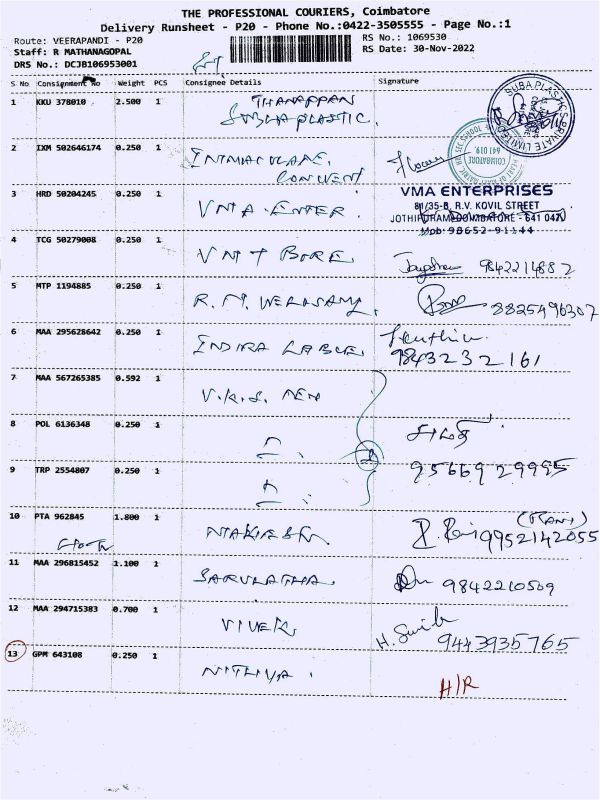 THE PROFESSIONAL COURIERS, Coimbatore
Delivery Runsheet - P20 - Phone No.:0422-3505555 - Page No.:1
Route: VEERAPANDI - P20
RS No.: 1069530
Staff: R MATHANAGOPAL
RS Date: 30-Nov-2022
DRS No.: DCJB106953001
S No Consignment No Weight PCS Consignee Details Signature
1 KKU 378010 2.500 1 THANAPPAN
SUBHA PLASTIC.
SUBA PLASTICS PRIVATE LIMITED
2 IXM 502646174 0.250 1 INMACULARE.
CONVENT
SEC SCHOOL
641 019
COIMBATORE
3 HRD 50204245 0.250 1 VMA ENTER.
VMA ENTERPRISES
81/35-B, R.V. KOVIL STREET
JOTHIPURAM, COIMBATORE - 641 047
Mob: 98652-91144
4 TCG 50279008 0.250 1 VMT BORE 9842214882
5 MTP 1194885 0.250 1 R. M. WERASAMY. 8825496307
6 MAA 295628642 0.250 1 INDIRA LABLE.
9843232161
7 MAA 567265385 0.592 1 V.K.S. MEN
8 POL 6136348 0.250 1
9 TRP 2554807 0.250 1 9566929995
10 PTA 962845 1.800 1 (RANI)
9952142055
11 MAA 296815452 1.100 1 SARULATHA 9842210509
12 MAA 294715383 0.700 1 VIVEK
9443935765
13 GPM 643108 0.250 1 NITHIYA. H/R